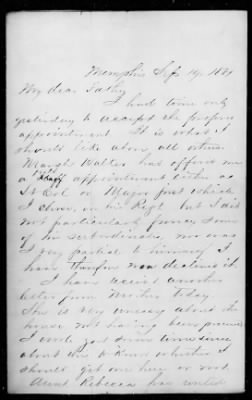 Memphis Sep 14. 1861
My dear Father
I had time only
yesterday to accept the proper
appointment. It is what I
should like above all others
Marsh Walker has offered me
a appointment either as
Lt Col or Major just which
I chose, in his Regt but I did
not particularly fancy some
of his subordinates, nor was
I very partial to himself I
have therefore declined it.
I have received another
letter from Mother today.
She is very uneasy about the
house not having been
I wrote just some time since
about to know whether I
should get one here or not.
Aunt Rebecca has written